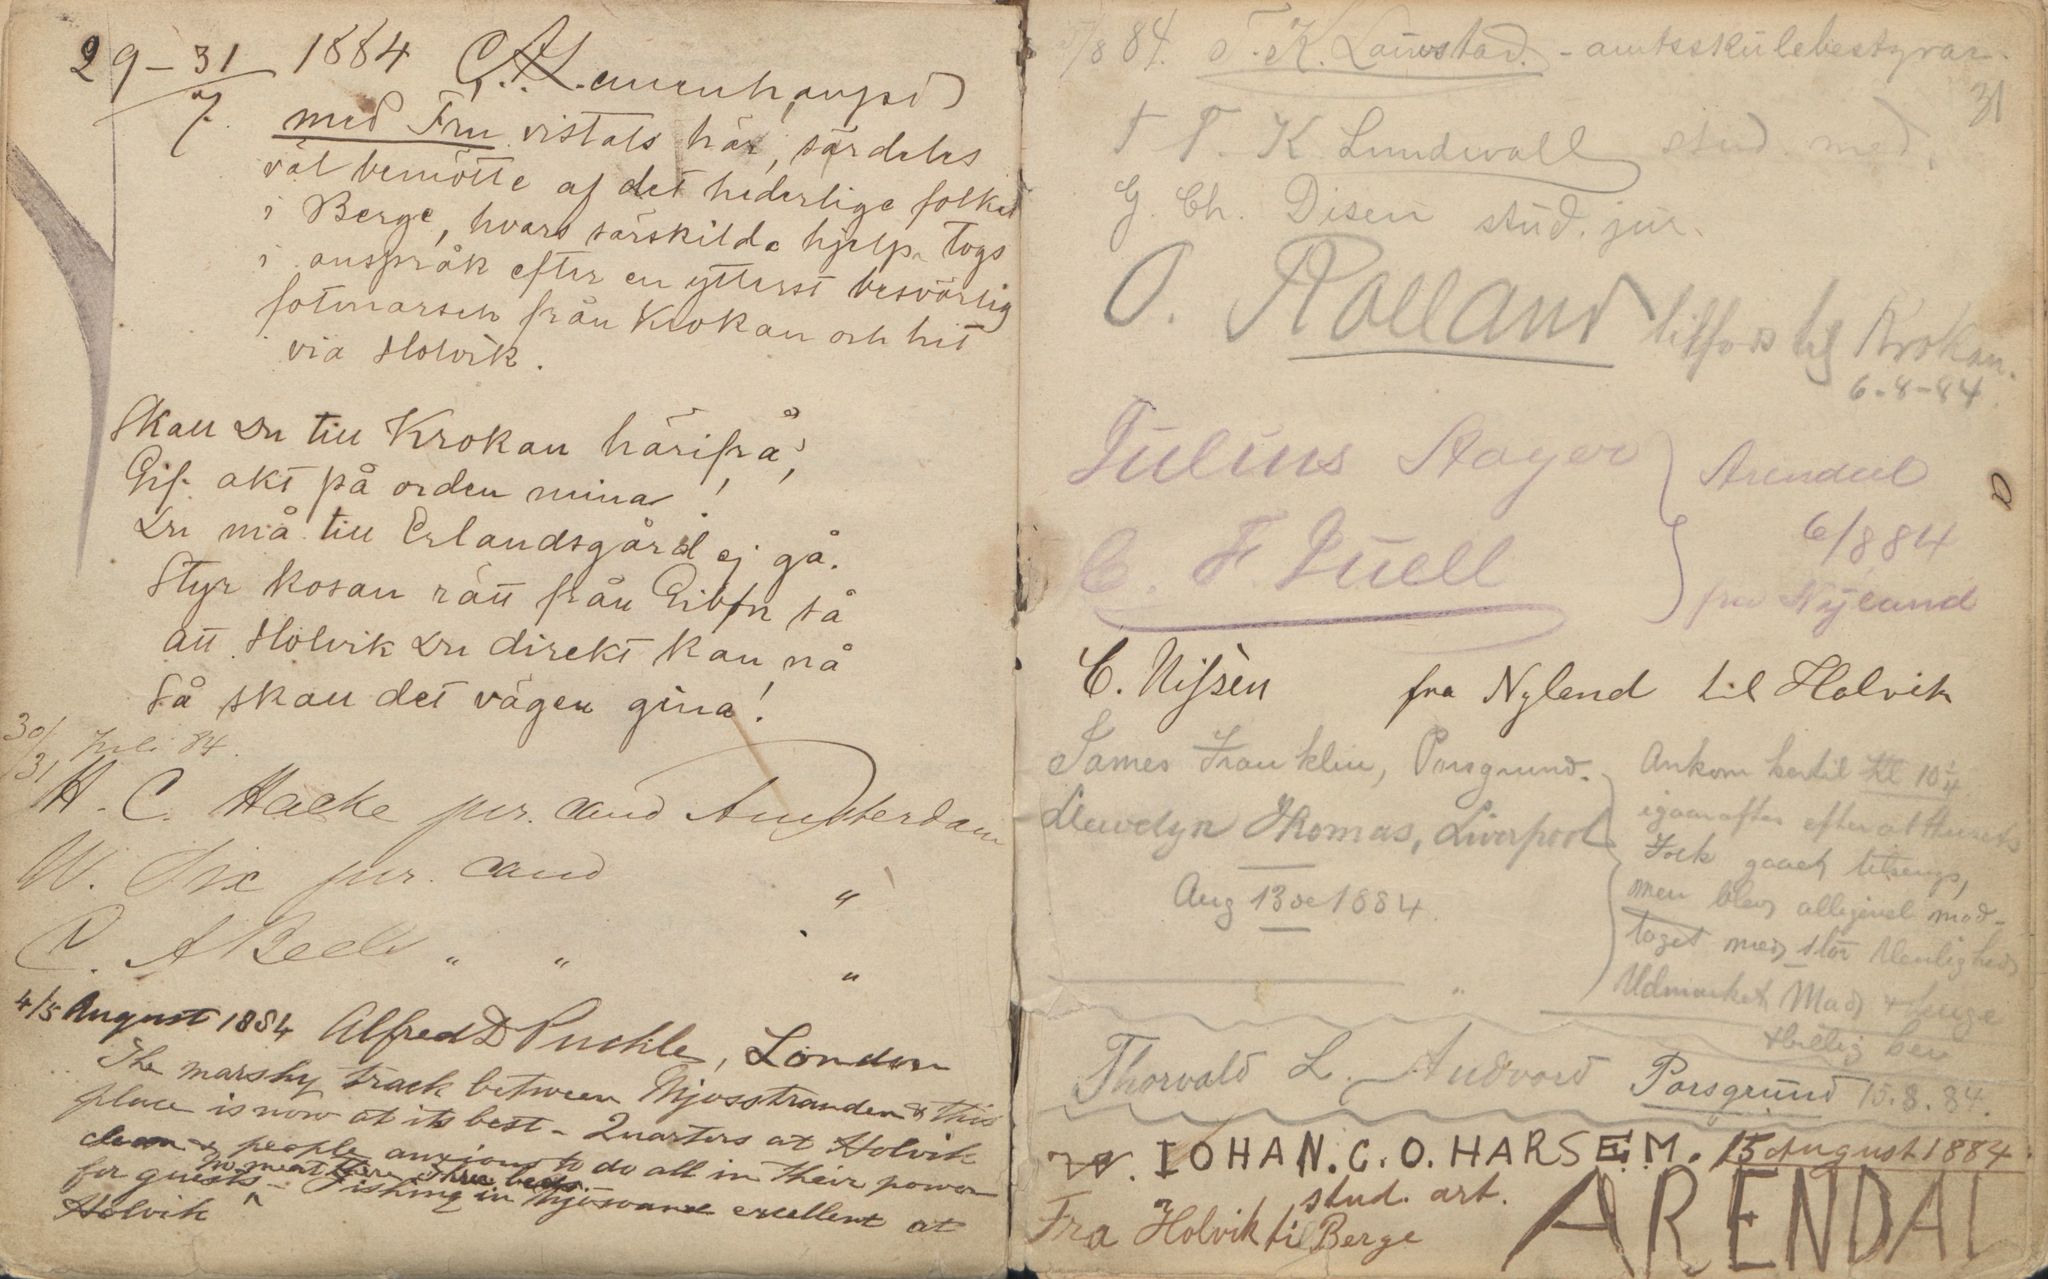 29-31/7. 1884 C. A.
med Fru vistats här, särdeles
väl bemötte af det hederlige folket
i Berge, hvars särskilda hjelp togs
i anspråk efter en ytterst besvärlig
fotmarsch från Krokan och hit
via Holvik.
Skall Du till Krokan härifrå,
Gif akt på orden mina!
Du må till Erlandsgård ej gå.
Styr kosan rätt från så
att Holvik Du direkt kan nå
Så skall det vägen gina!
30/31 Juli 84.
H. C. Hacke jur. cand Amsterdam
W. Six jur. cand "
C. A " " "
4/5 August 1884 Alfred D Puckle, London
The marshy track between Mjosstranden & this
place is now at its best - Quarters at Holvik
clean & people anxious to do all in their power
for guests - no meat there three beds. Fishing in Mjosvand excellent at
Holvik
5/8 84. T. K. Lauvstad. - amtsskulebestyrar.
31
T. K. Lundwall stud. med.
G. Ch. Disen stud. jur.
O. Rolland tilfods til Krokan.
6-8-84.
Julius Arendal
C. F. Juell 6/8 84
fra Nyland
C. Nissen fra Nylend til Holvik
James Franklin, Porsgrund.
Llewelyn Thomas, Liverpool
Aug 13de 1884.
Ankom hertil Kl 10¼
igaaraftes efterat Husets
Folk gaaet tilsengs,
men blev alligevel mod-
taget med stor Venlighed
Udmærket Mad & Senge
& billig
Thorvald L. Audvord Porsgrund 15.8.84.
IOHAN. C. O. HARSEM. 15 August 1884
stud. art.
Fra Holvik til Berge
ARENDAL